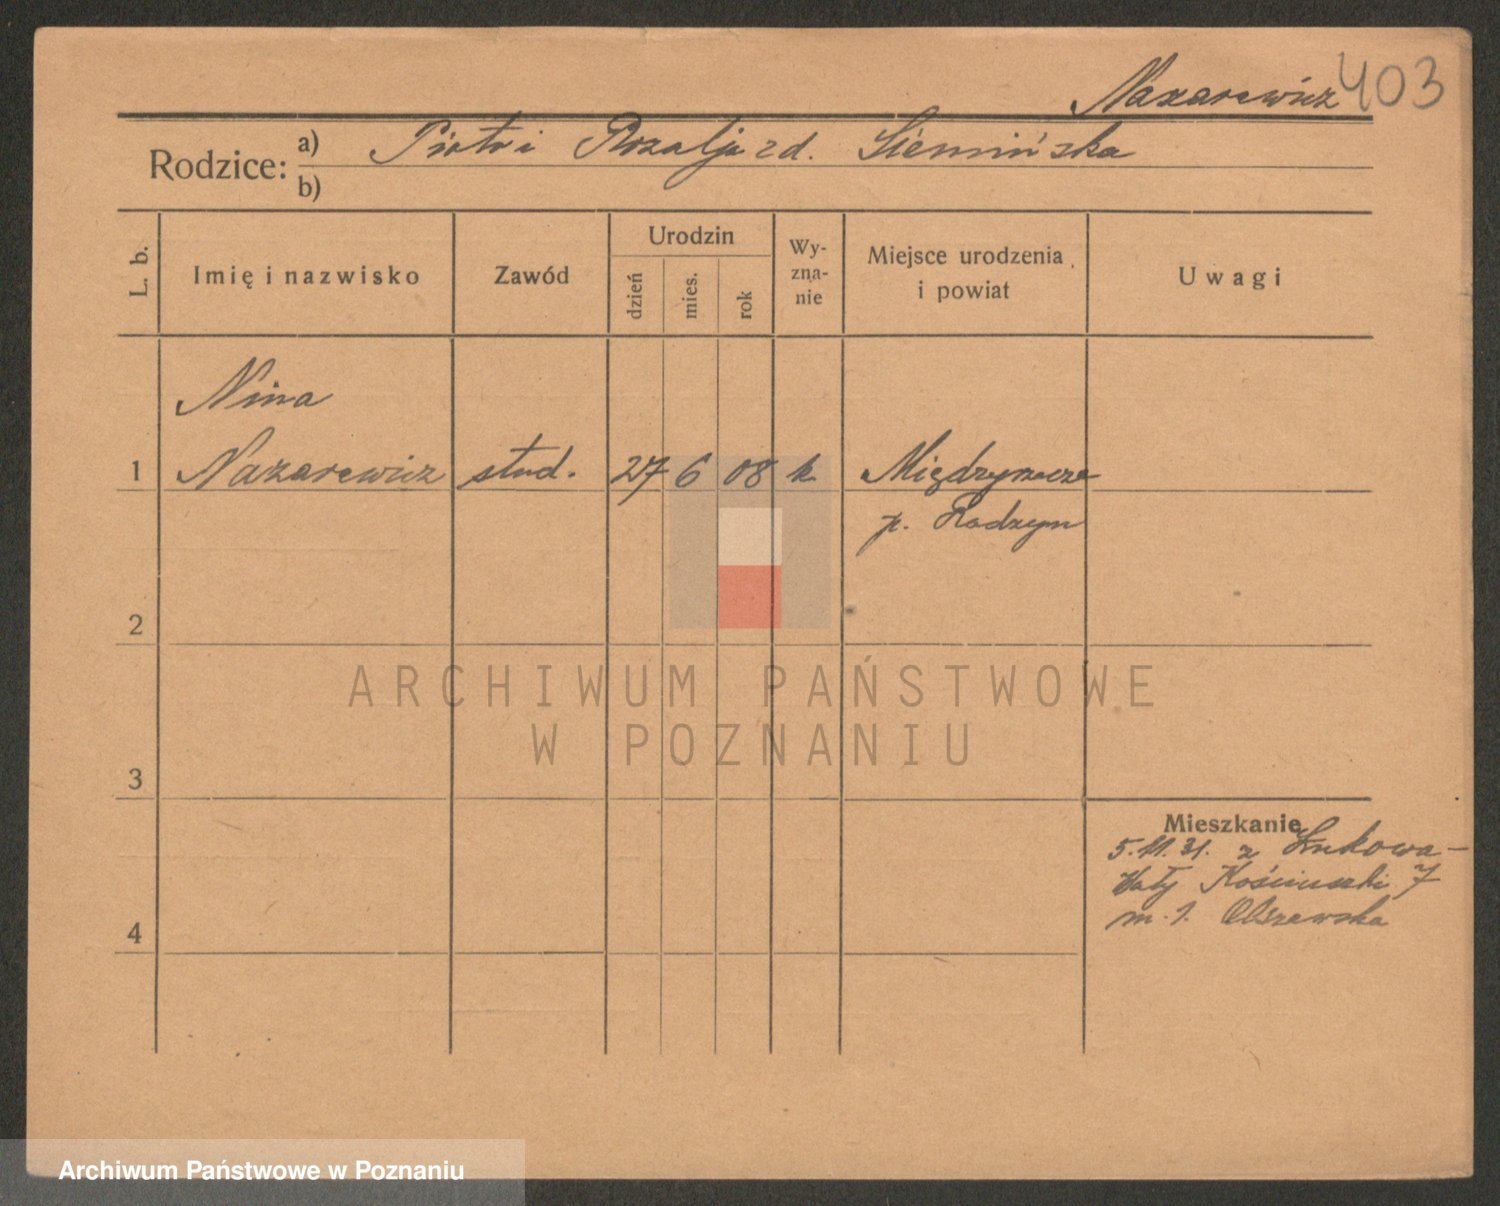 Nazarewicz 403
Rodzice: a) Piotr i Rozalja zd. Siemińska
b)
L. b.
Imię i nazwisko
Zawód
Urodzin
dzień
mies.
rok
Wy-
zna-
nie
Miejsce urodzenia
i powiat
Uwagi
Nina
1 Nazarewicz stud. 27 6 08 k. Międzyrzecze
p. Radzyn
2
3
4
ARCHIWUM PAŃSTWOWE
W POZNANIU
Mieszkanie
5.11.31. z Łukowa-
Wały Kościuszki 7
m. 1. Olszewska
Archiwum Państwowe w Poznaniu